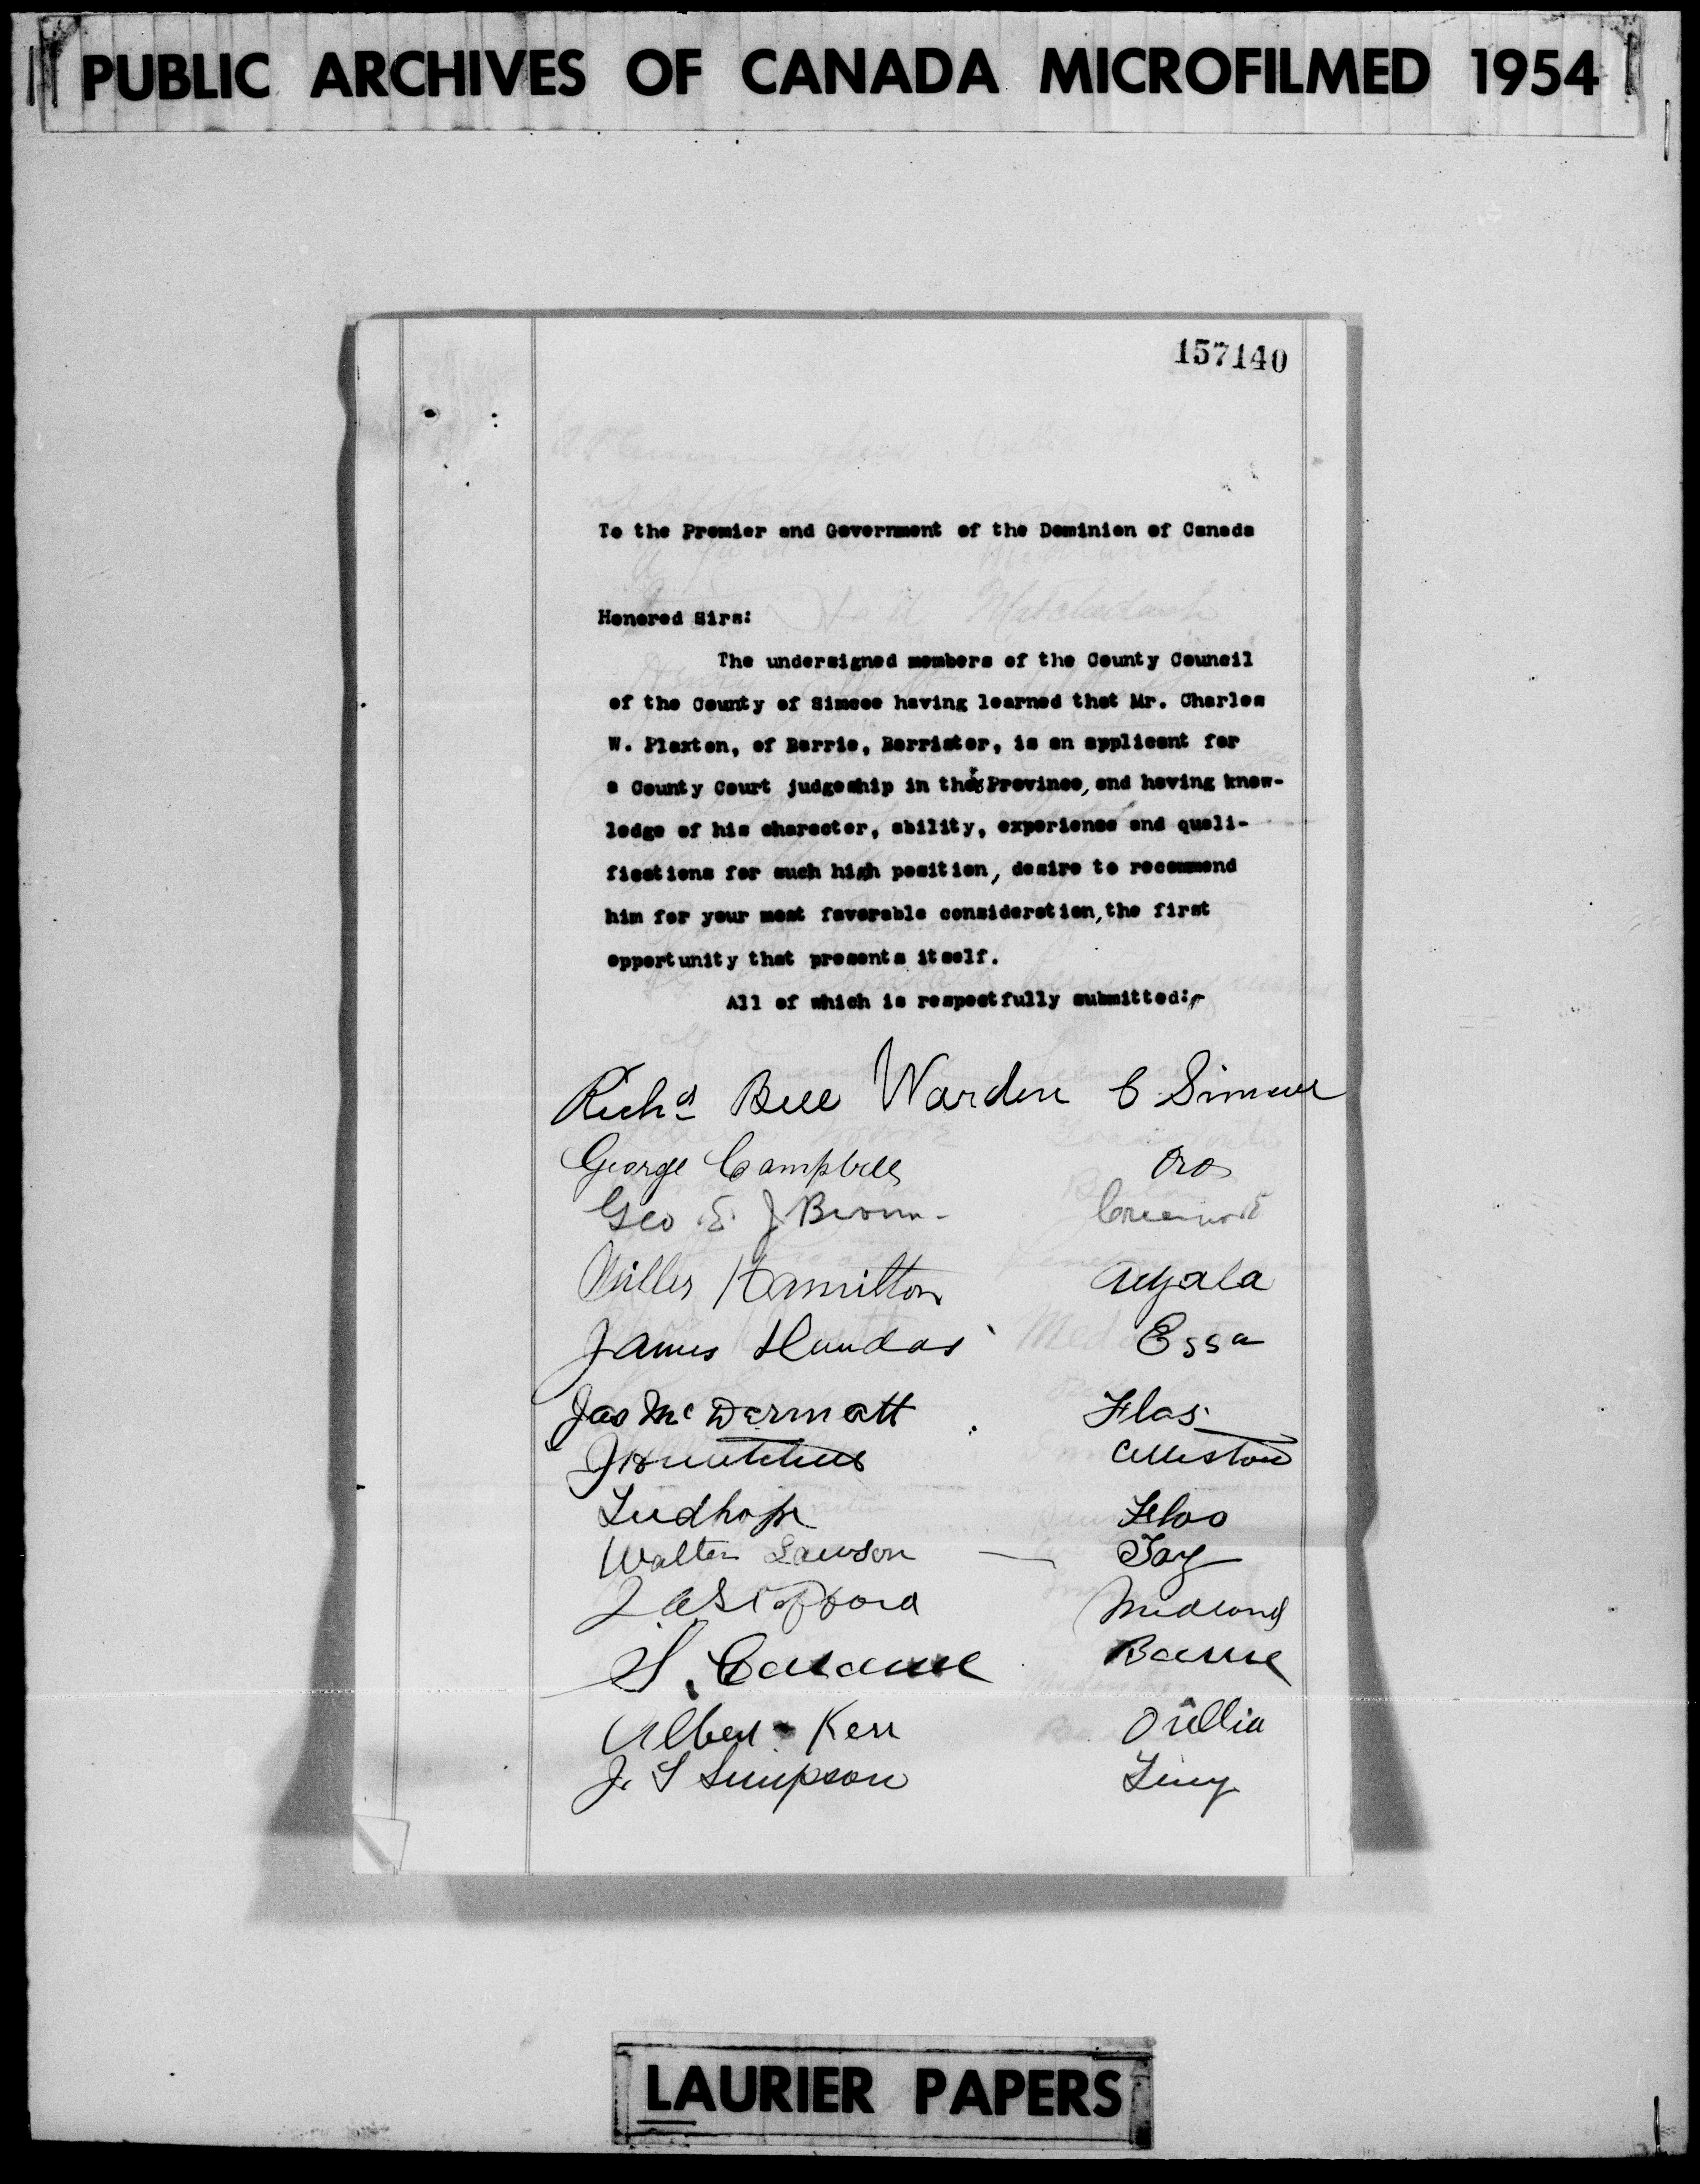 PUBLIC ARCHIVES OF CANADA MICROFILMED 1954
157140
To the Premier and Government of the Dominion of Canada
Honored Sirs:
The undersigned members of the County Council
of the County of Simcoe having learned that Mr. Charles
W. Plaxton, of Barrie, Barrister, is an applicant for
a County Court judgeship in this Province, and having know-
ledge of his character, ability, experience and quali-
fications for such high position, desire to recommend
him for your most favorable consideration, the first
opportunity that presents itself.
All of which is respectfully submitted:-
Richd Bell Warden C Simcoe
George Campbell Oro
Geo. E. J Brown
Miller Hamilton
James Dundas Essa
Jas McDermott Flos
Alliston
Tudhope
Walter Lawson — Tay
Midland
Barrie
Albert Kerr Orillia
J. S Simpson Tiny
LAURIER PAPERS